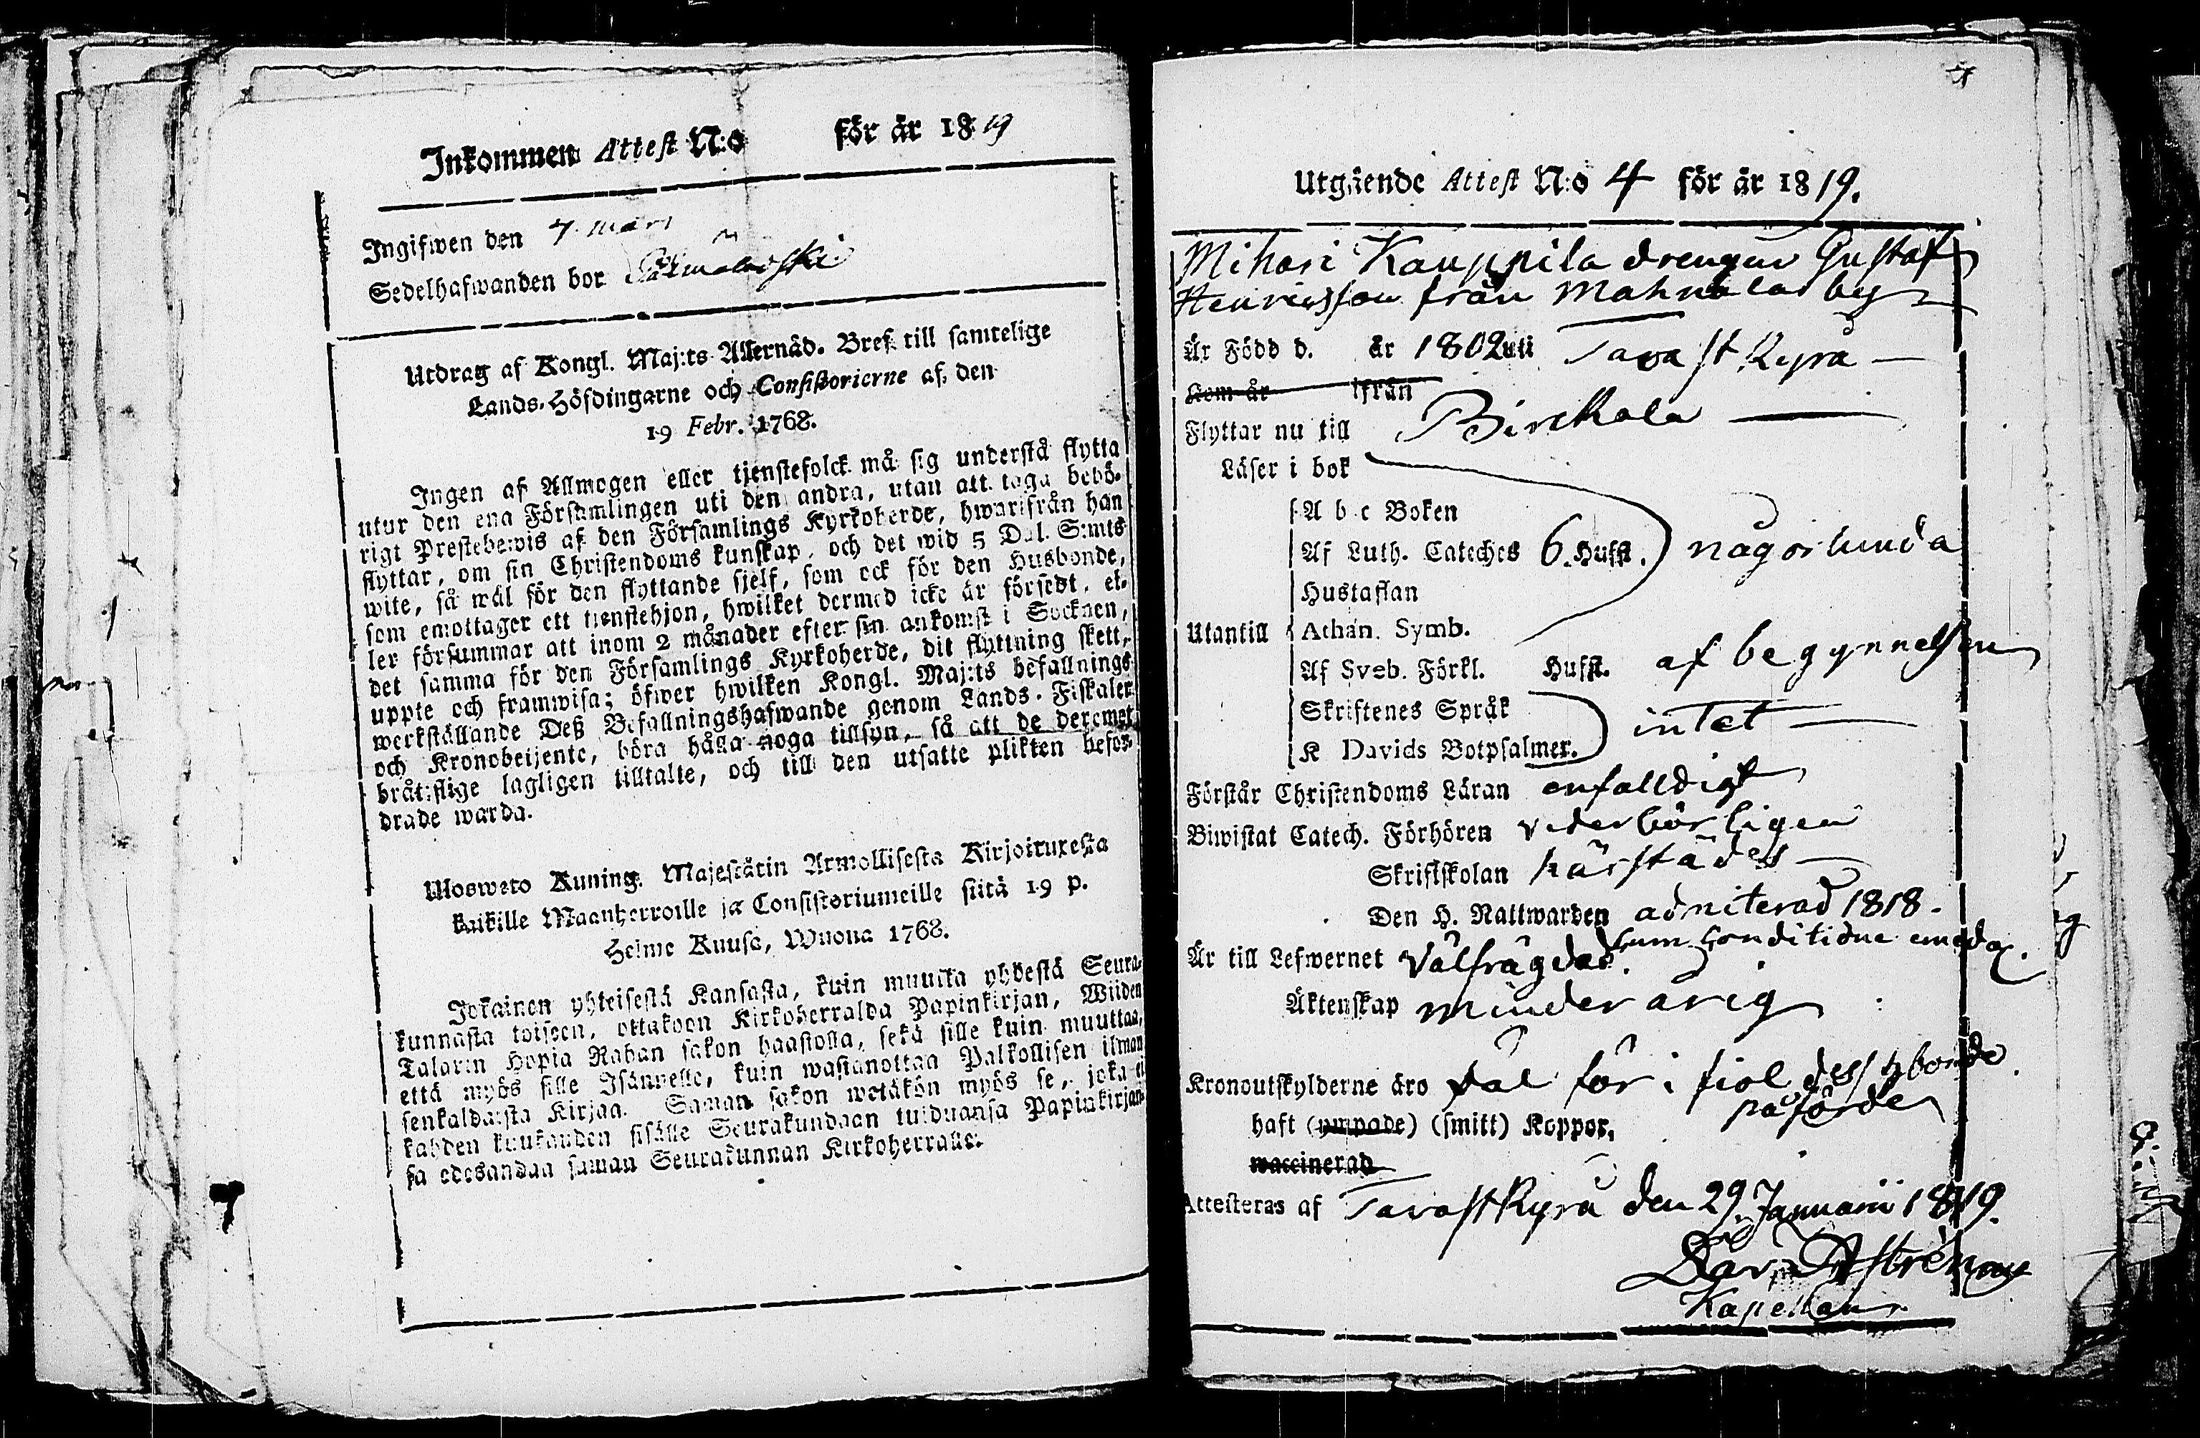 Inkommen Attest N:o för år 1819
Ingifwen den 7 mars
Sedelhafwanden bor
Utdrag af Kongl. Maj:ts Allernåd. Bref till samtelige
Lands-Höfdingarne och Consistorierne af den
19 Febr. 1768.
Ingen af Allmogen eller tjenstefolck må sig understå flytta
utur den ena Församlingen uti den andra, utan att taga behö-
rigt Prestebewis af den Församlings Kyrkoherde, hwarifrån han
flyttar, om sin Christendoms kunskap, och det wid 5 Dal. S:mts
wite, så wäl för den flyttande sjelf, som ock för den Husbonde,
som emottager ett tienstehjon, hwilket dermed icke är försedt, el-
ler försummar att inom 2 månader efter sin ankomst i Socknen,
det samma för den Församlings Kyrkoherde, dit flyttning skett,
uppte och framwisa; öfwer hwilken Kongl. Maj:ts befallnings
werkställande Deß Befallningshafwande genom Lands-Fiskaler
och Kronobetjente, böra hålla noga tillsyn, så att de deremot
bråtzlige lagligen tilltalte, och till den utsatte plikten befor-
drade warda.
Ulosweto Kuning. Majestätin Armollisesta Kirjoituxesta
kaikille Maanherroille ja Consistoriumeille siitä 19 p.
Helme Kuusa, Wuona 1768.
Jokainen yhteisestä Kansasta, kuin muutta yhdestä Seura-
kunnasta toiseen, ottakoon Kirkoherralda Papinkirjan, Wiiden
Talarin Hopia Rahan sakon haastolla, sekä sille kuin muuttaa,
että myös sille Isännelle, kuin wastanottaa Palkollisen ilman
senkaldaista Kirjaa. Saman sakon wetäkön myös se, joka ei
kahden kuukauden sisälle Seurakundaan tulduansa Papinkirjan-
sa edesandaa saman Seurakunnan Kirkoherralle.
Utgående Attest N:o 4 för år 1819.
Mihari Kauppila drengen Gustaf
Henricsson från Mahnala by
Är Född d. år 1802 uti Tavastkyrå
Kom år ifrån
Flyttar nu till Birckala
Läser i bok
A b c Boken
Af Luth. Cateches 6. Hufst. någorlunda
Hustaflan
Utantill Athan. Symb.
Af Sveb. Förkl. Hufst. af begynnelsen
Skriftenes Språk
K Davids Botpsalmer. intet
Förstår Christendoms Läran enfalldigt
Biwistat Catech. Förhören vederbörligen
Skriftskolan härstädes
Den H. Nattwarden admiterad 1818.
cum conditione
Är till Lefwernet välfrägdad.
Äktenskap minderårig
Kronoutskylderne äro för i fjol dess hbonde
påförde
haft (ympade) (smitt) Koppor,
waccinerad
Attesteras af Tavastkyrå den 29. Januarii 1819.
Dav. Astrén
Kapellan